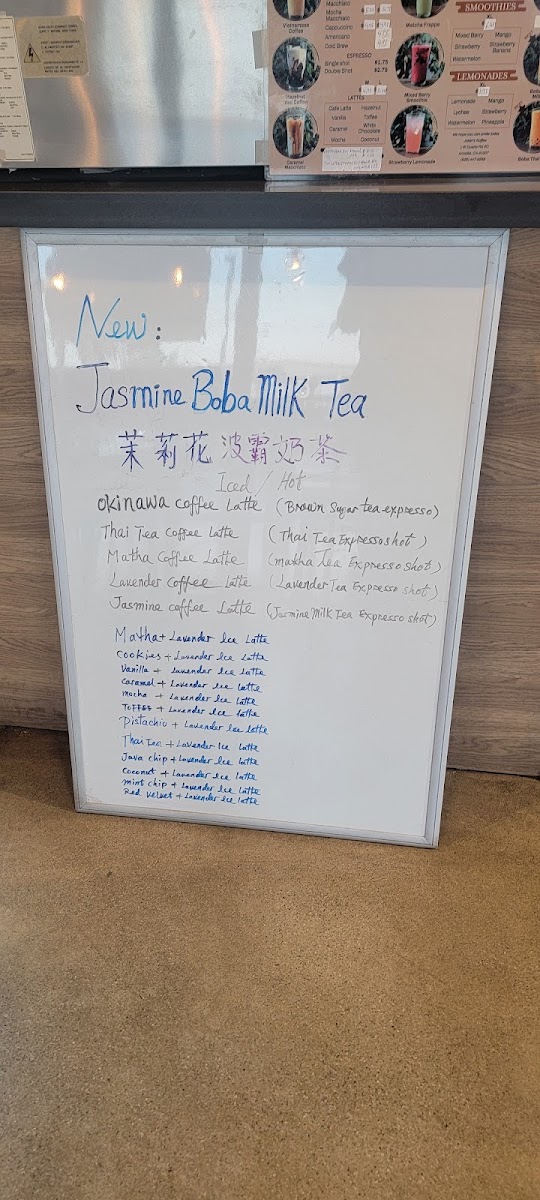 Macchiato
Mocha
Macchiato
Cappuccino
Americano
Cold Brew
Vietnamese
Coffee
ESPRESSO
Single shot $1.75
Double Shot $2.75
LATTES
Cafe Latte Hazelnut
Vanilla Toffee
Caramel White Chocolate
Mocha Coconut
Caramel
Macchiato
Matcha Frappe
Mixed Berry
Smoothie
Strawberry Lemonade
SMOOTHIES
Mixed Berry Mango
Strawberry Strawberry Banana
Watermelon
LEMONADES
Lemonade Mango
Lychee Strawberry
Watermelon Pineapple
New:
Jasmine Boba Milk Tea
茉莉花波霸奶茶
Iced / Hot
Okinawa coffee Latte (Brown Sugar tea expresso)
Thai Tea Coffee Latte (Thai Tea Expresso shot)
Matha Coffee Latte (matha Tea Expresso shot)
Lavender coffee Latte (Lavender Tea Expresso shot)
Jasmine coffee Latte (Jasmine Milk Tea Expresso shot)
Matha + Lavender Ice Latte
Cookies + Lavender Ice Latte
Vanilla + Lavender Ice Latte
Caramel + Lavender Ice Latte
mocha + Lavender Ice Latte
TOFFEE + Lavender Ice Latte
Pistachio + Lavender Ice latte
Thai Tea + Lavender Ice Latte
Java chip + Lavender Ice Latte
Coconut + Lavender Ice Latte
mint chip + Lavender Ice Latte
Red Velvet + Lavender Ice Latte